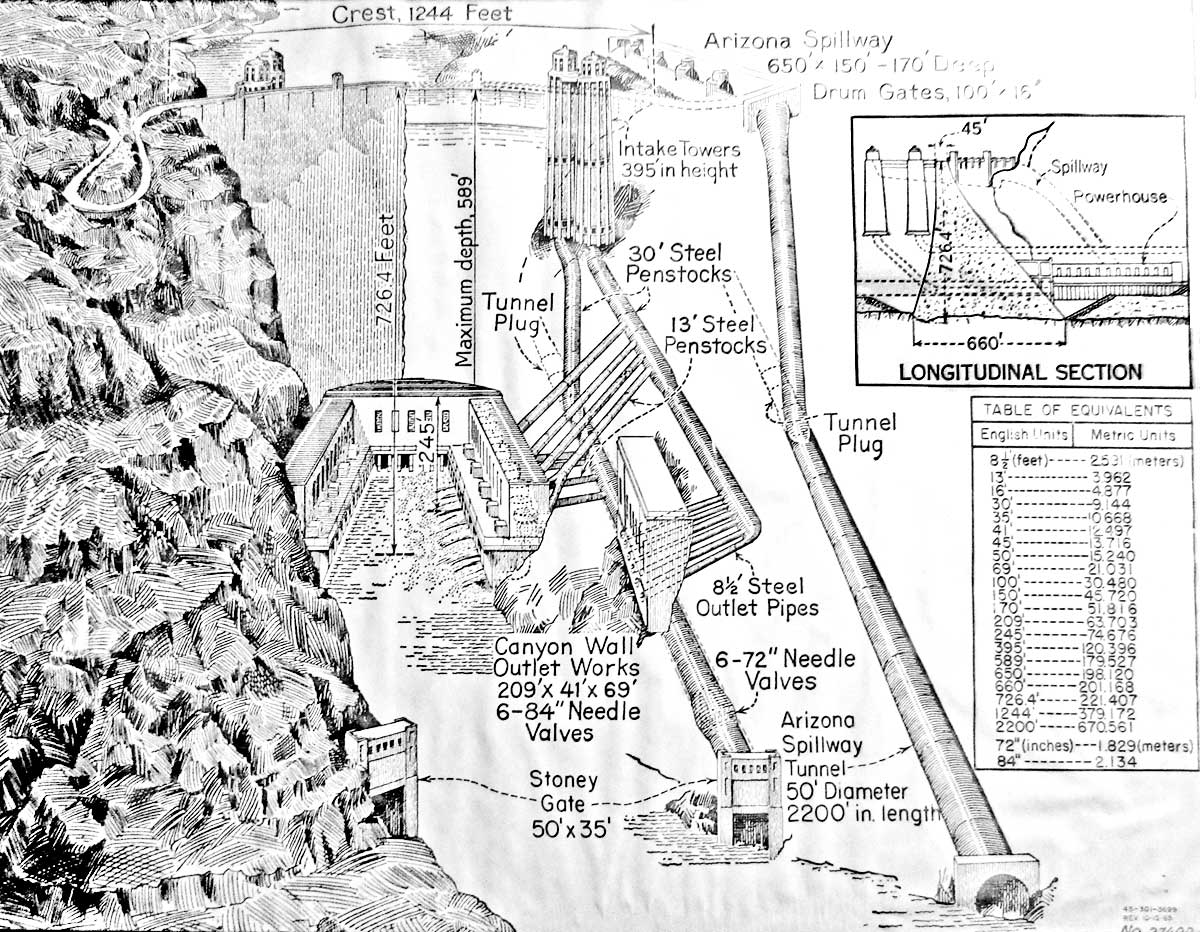 Crest, 1244 Feet
Arizona Spillway
650' x 150' - 170' Deep
Drum Gates, 100' x 16'
Intake Towers
395' in height
726.4 Feet
Maximum depth, 589'
30' Steel
Penstocks
Tunnel
Plug
13' Steel
Penstocks
245'
Tunnel
Plug
8½' Steel
Outlet Pipes
Canyon Wall
Outlet Works
209' x 41' x 69'
6-84" Needle
Valves
6-72" Needle
Valves
Arizona
Spillway
Tunnel
50' Diameter
2200' in. length
Stoney
Gate
50' x 35'
45'
Spillway
Powerhouse
726.4'
660'
LONGITUDINAL SECTION
TABLE OF EQUIVALENTS
English Units Metric Units
8½' (feet) ----- 2.591 (meters)
13' ----- 3.962
16' ----- 4.877
30' ----- 9.144
35' ----- 10.668
41' ----- 12.497
45' ----- 13.716
50' ----- 15.240
69' ----- 21.031
100' ----- 30.480
150' ----- 45.720
170' ----- 51.816
209' ----- 63.703
245' ----- 74.676
395' ----- 120.396
589' ----- 179.527
650' ----- 198.120
660' ----- 201.168
726.4' ----- 221.407
1244' ----- 379.172
2200' ----- 670.561
72" (inches) --- 1.829 (meters)
84" ----- 2.134
45-301-3699